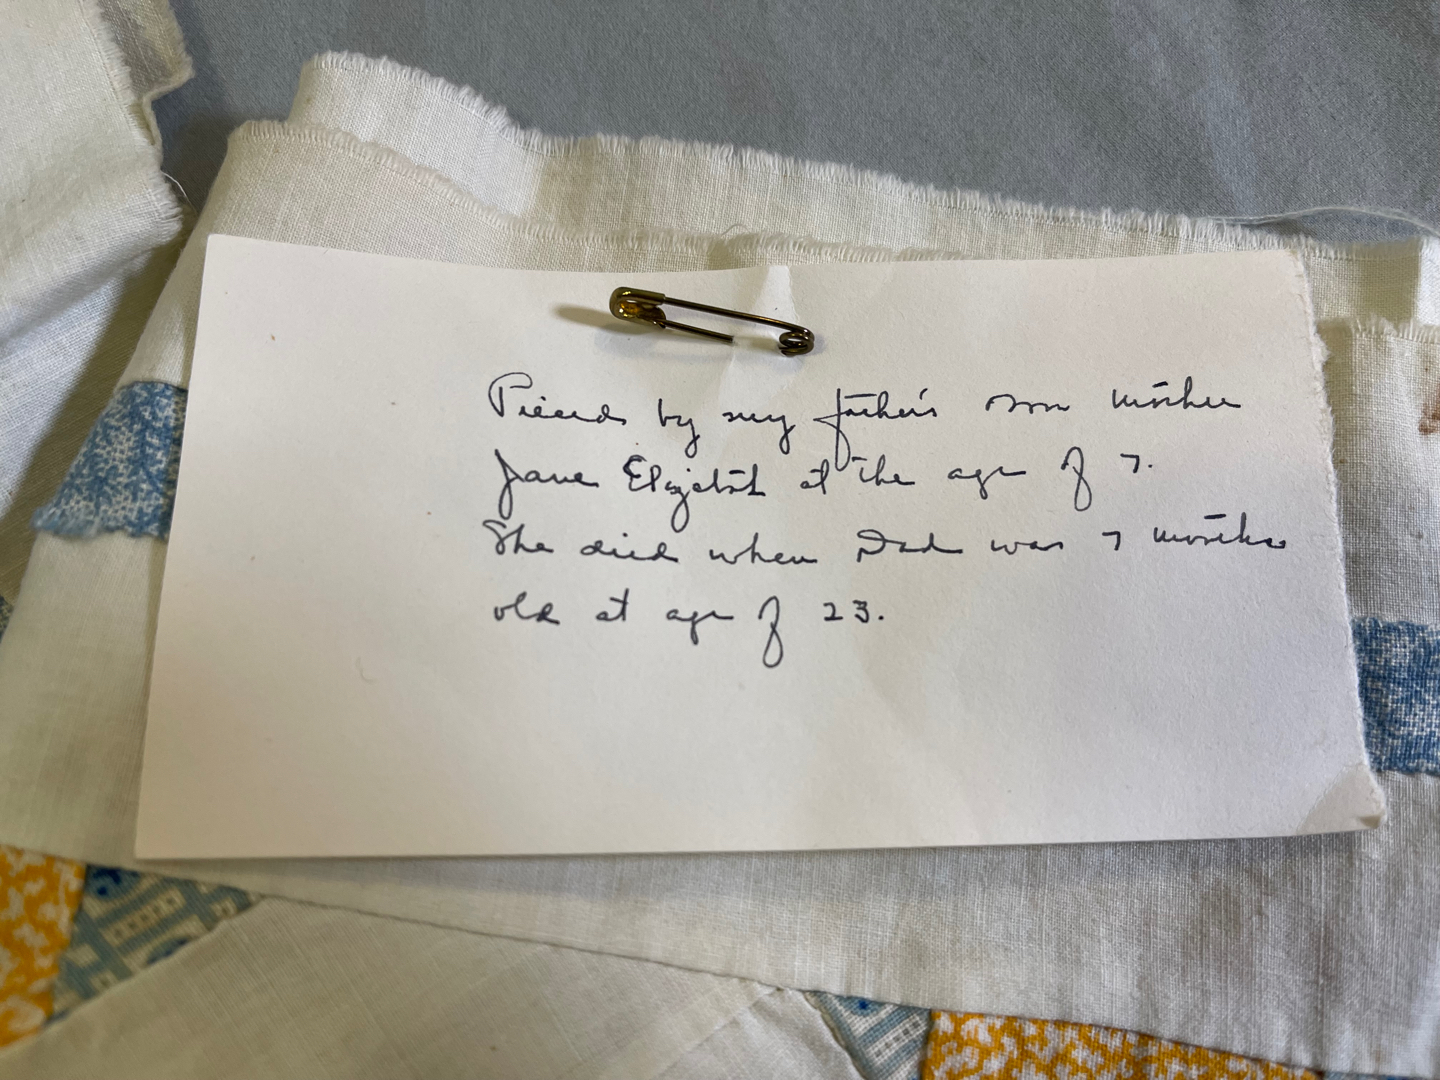 Pieced by my father's own mother
Jane Elizabeth at the age of 7.
She died when Dad was 7 months
old at age of 23.